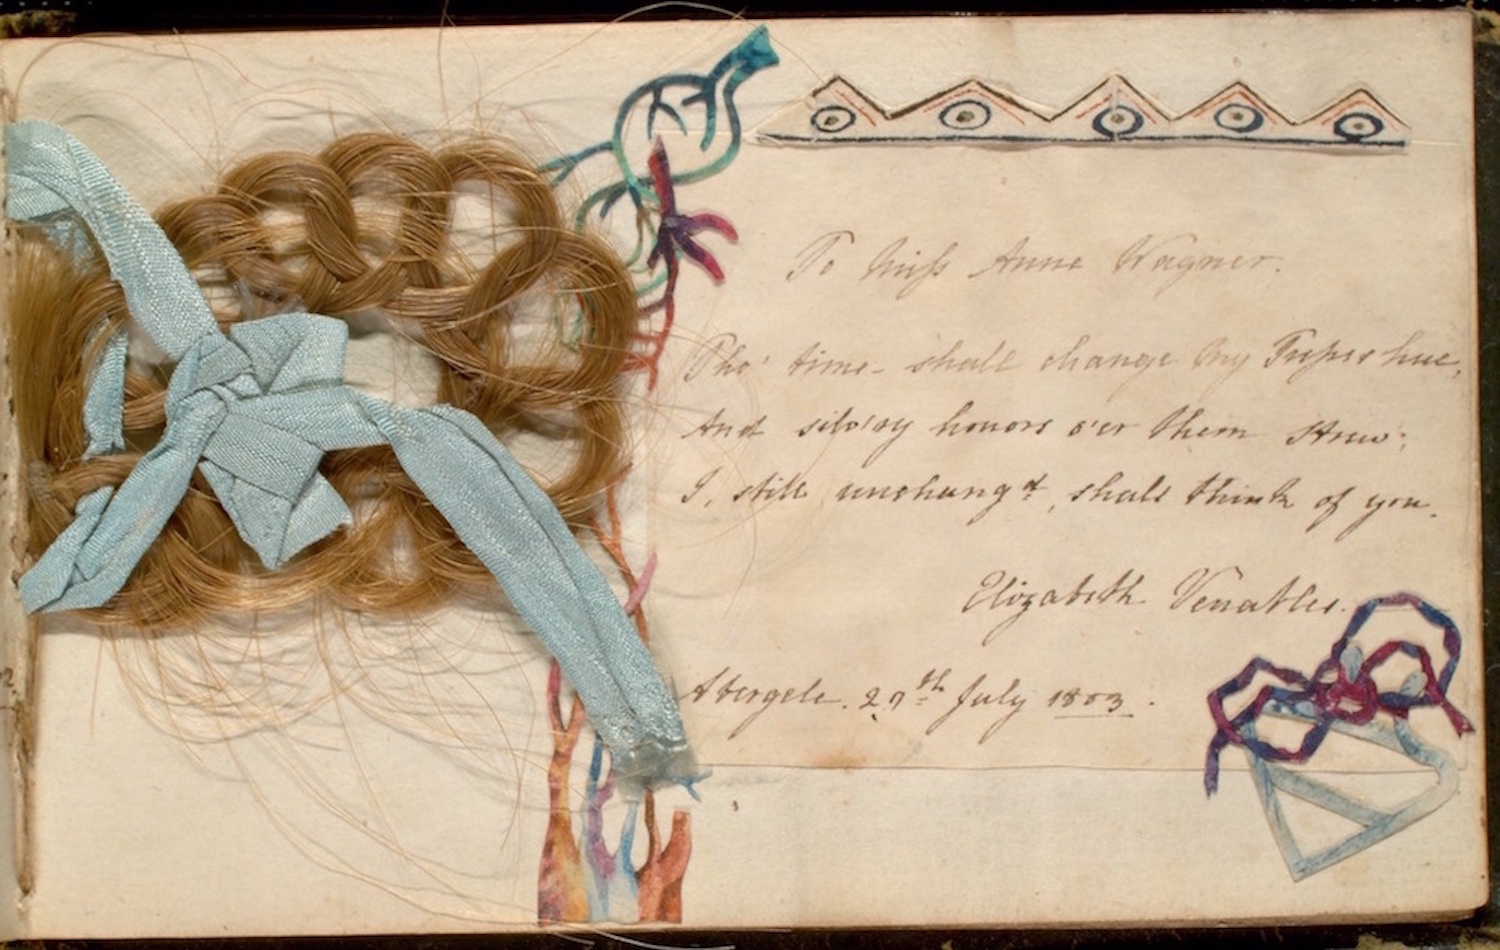 To Miſs Anne Wagner.
Tho' time shall change my Treſses hue,
And silv'ry honors o'er them strew:
I, still unchang'd, shall think of you.
Elizabeth Venables.
Abergele. 27th July 1803.